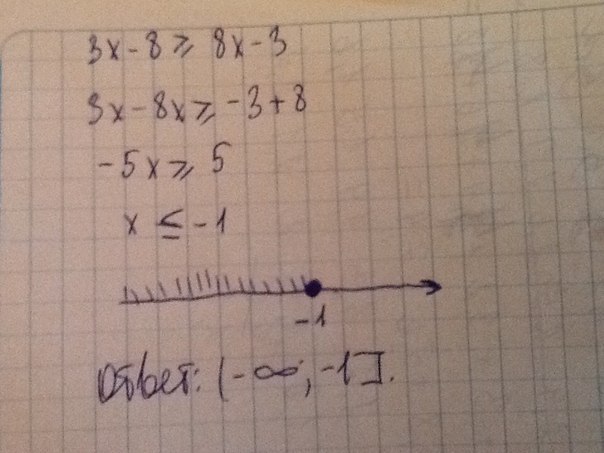 3x - 8 ⩾ 8x - 3
3x - 8x ⩾ -3 + 8
-5x ⩾ 5
x ≤ -1
-1
Ответ: (-∞; -1].